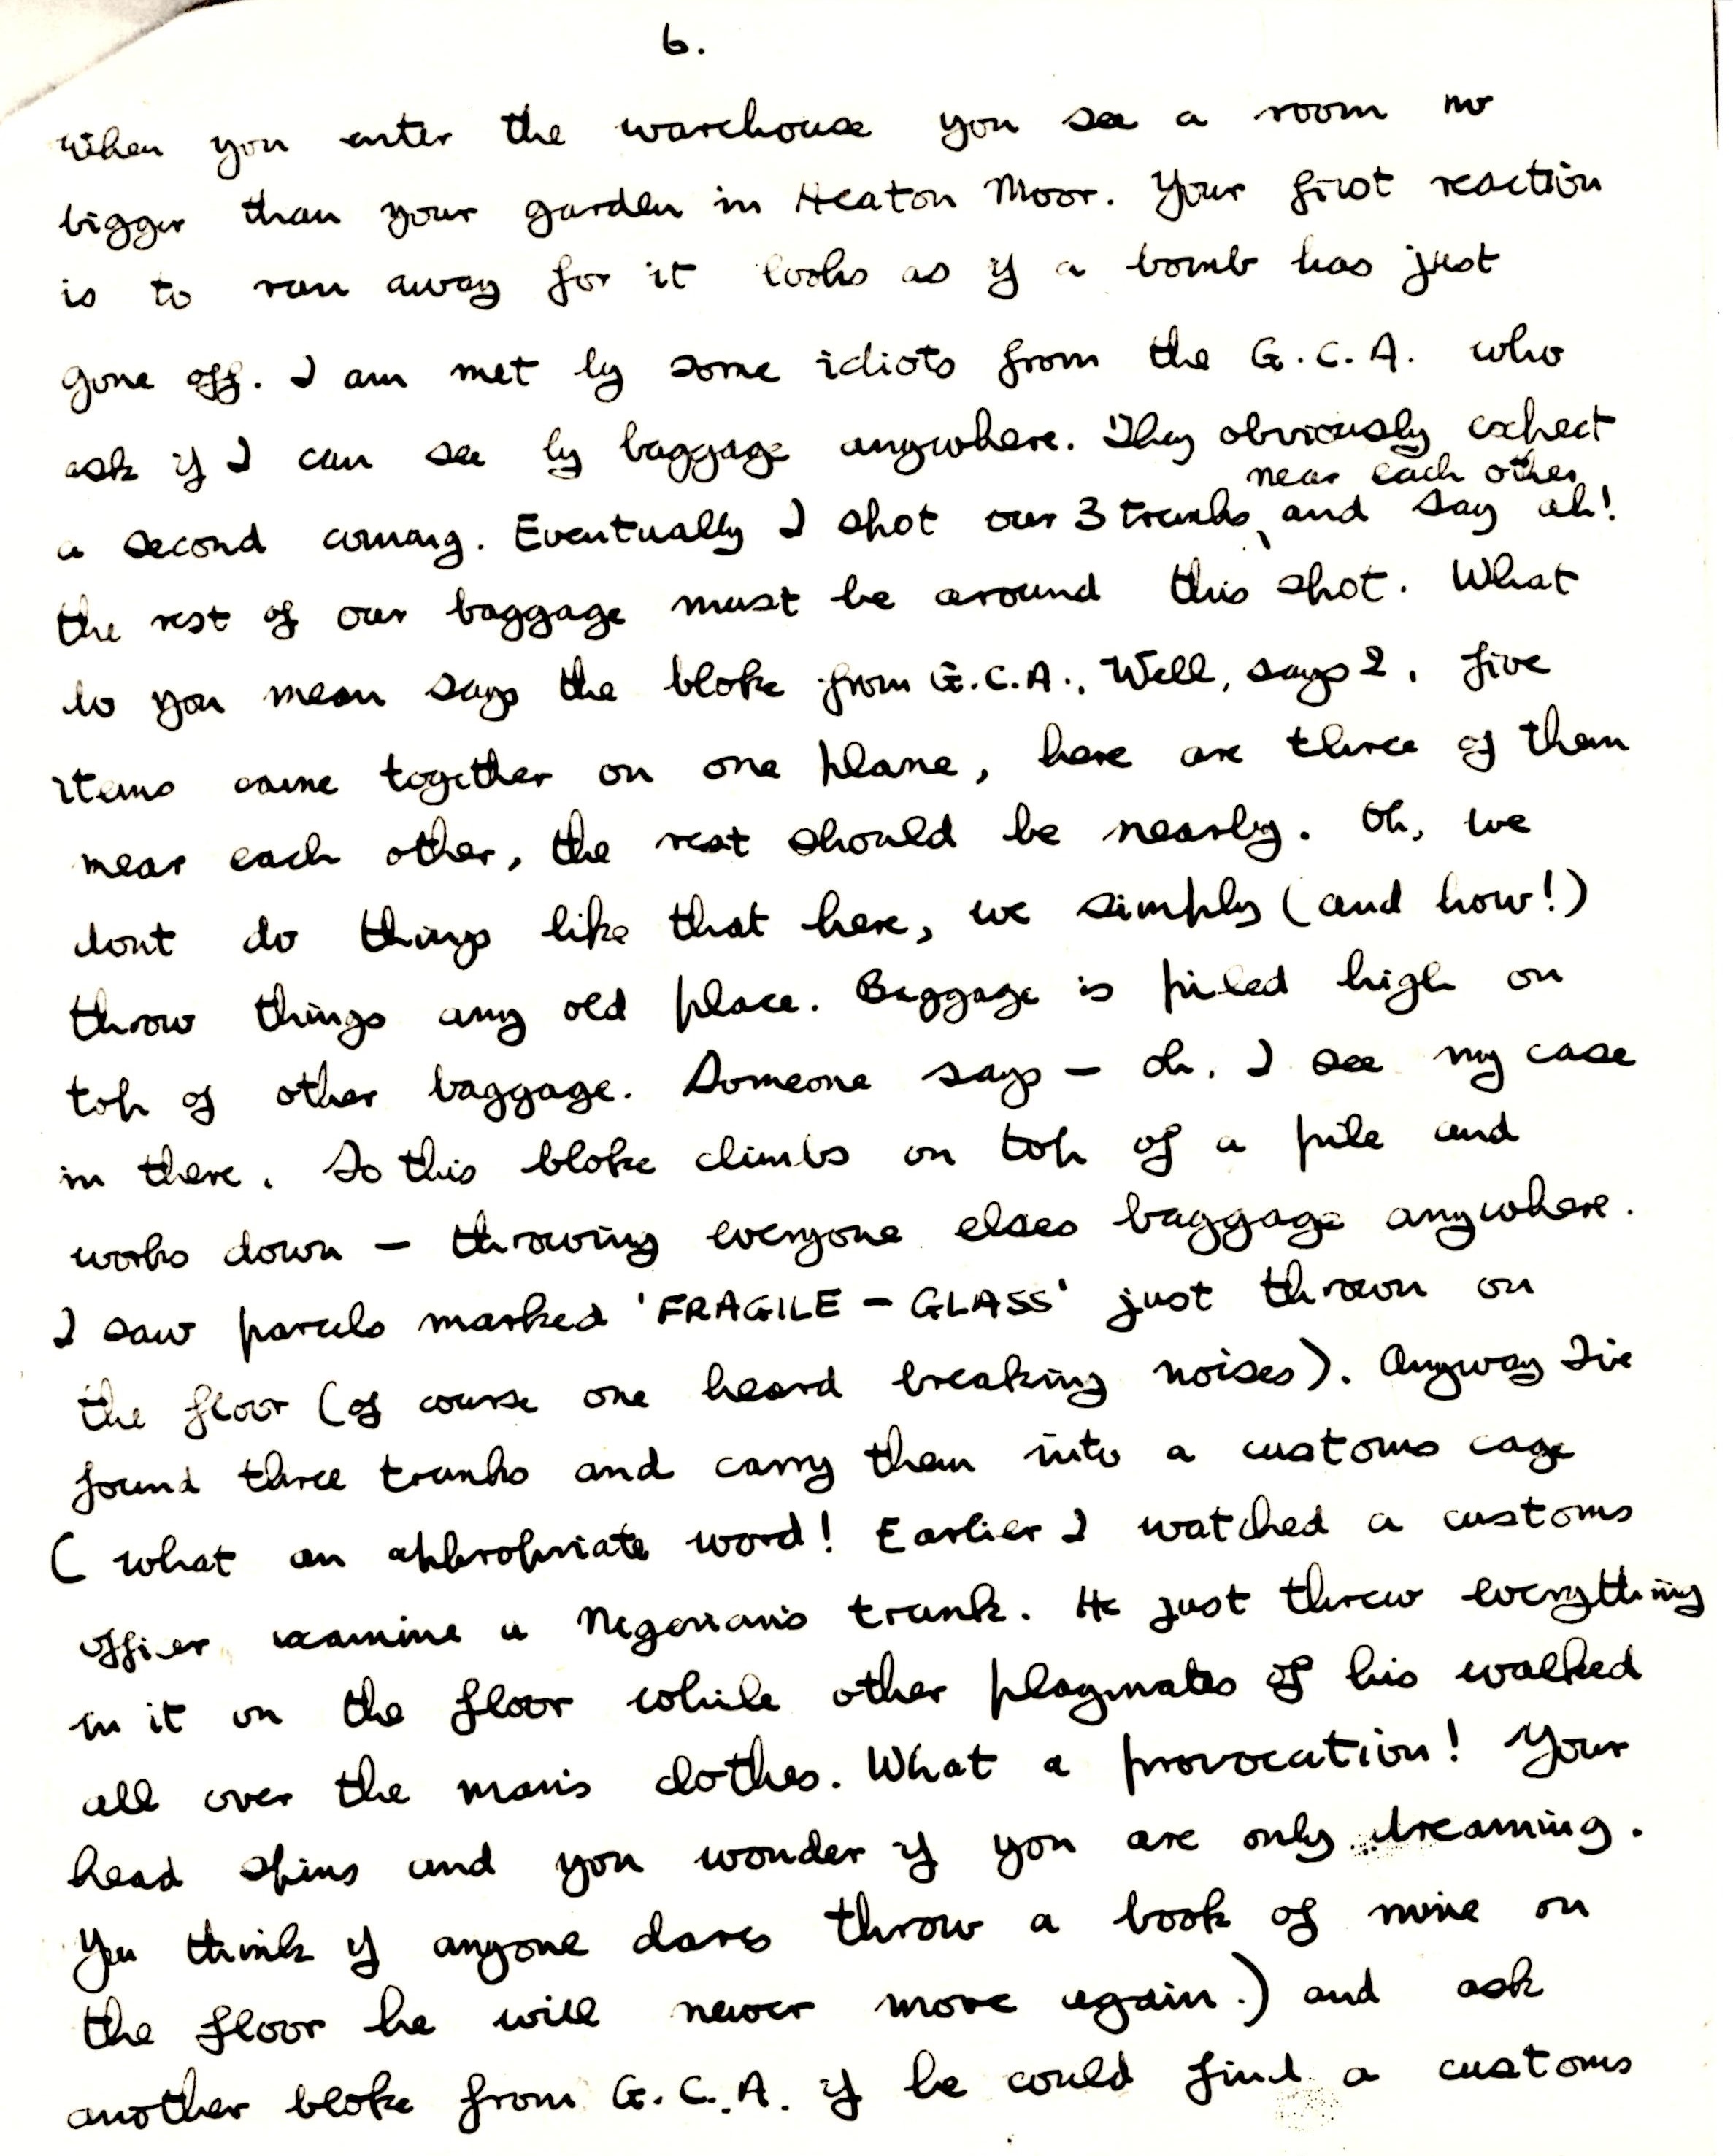 6.
When you enter the warehouse you see a room no
bigger than your garden in Heaton Moor. Your first reaction
is to run away for it looks as if a bomb has just
gone off. I am met by some idiots from the G.C.A. who
ask if I can see by baggage anywhere. They obviously expect
near each other
a second coming. Eventually I spot our 3 trunks and say ah!
the rest of our baggage must be around this spot. What
do you mean says the bloke from G.C.A., Well, says I, five
items came together on one plane, here are three of them
near each other, the rest should be nearby. Oh, we
dont do things like that here, we simply (and how!)
throw things any old place. Baggage is piled high on
top of other baggage. Someone says – oh, I see my case
in there. So this bloke climbs on top of a pile and
works down – throwing everyone elses baggage anywhere.
I saw parcels marked 'FRAGILE – GLASS' just thrown on
the floor (of course one heard breaking noises). Anyway I've
found three trunks and carry them into a customs cage
(what an appropriate word! Earlier I watched a customs
officer examine a Nigerian's trunk. He just threw everything
in it on the floor while other playmates of his walked
all over the man's clothes. What a provocation! Your
head spins and you wonder if you are only dreaming.
You think if anyone dares throw a book of mine on
the floor he will never move again.) and ask
another bloke from G.C.A. if he could find a customs